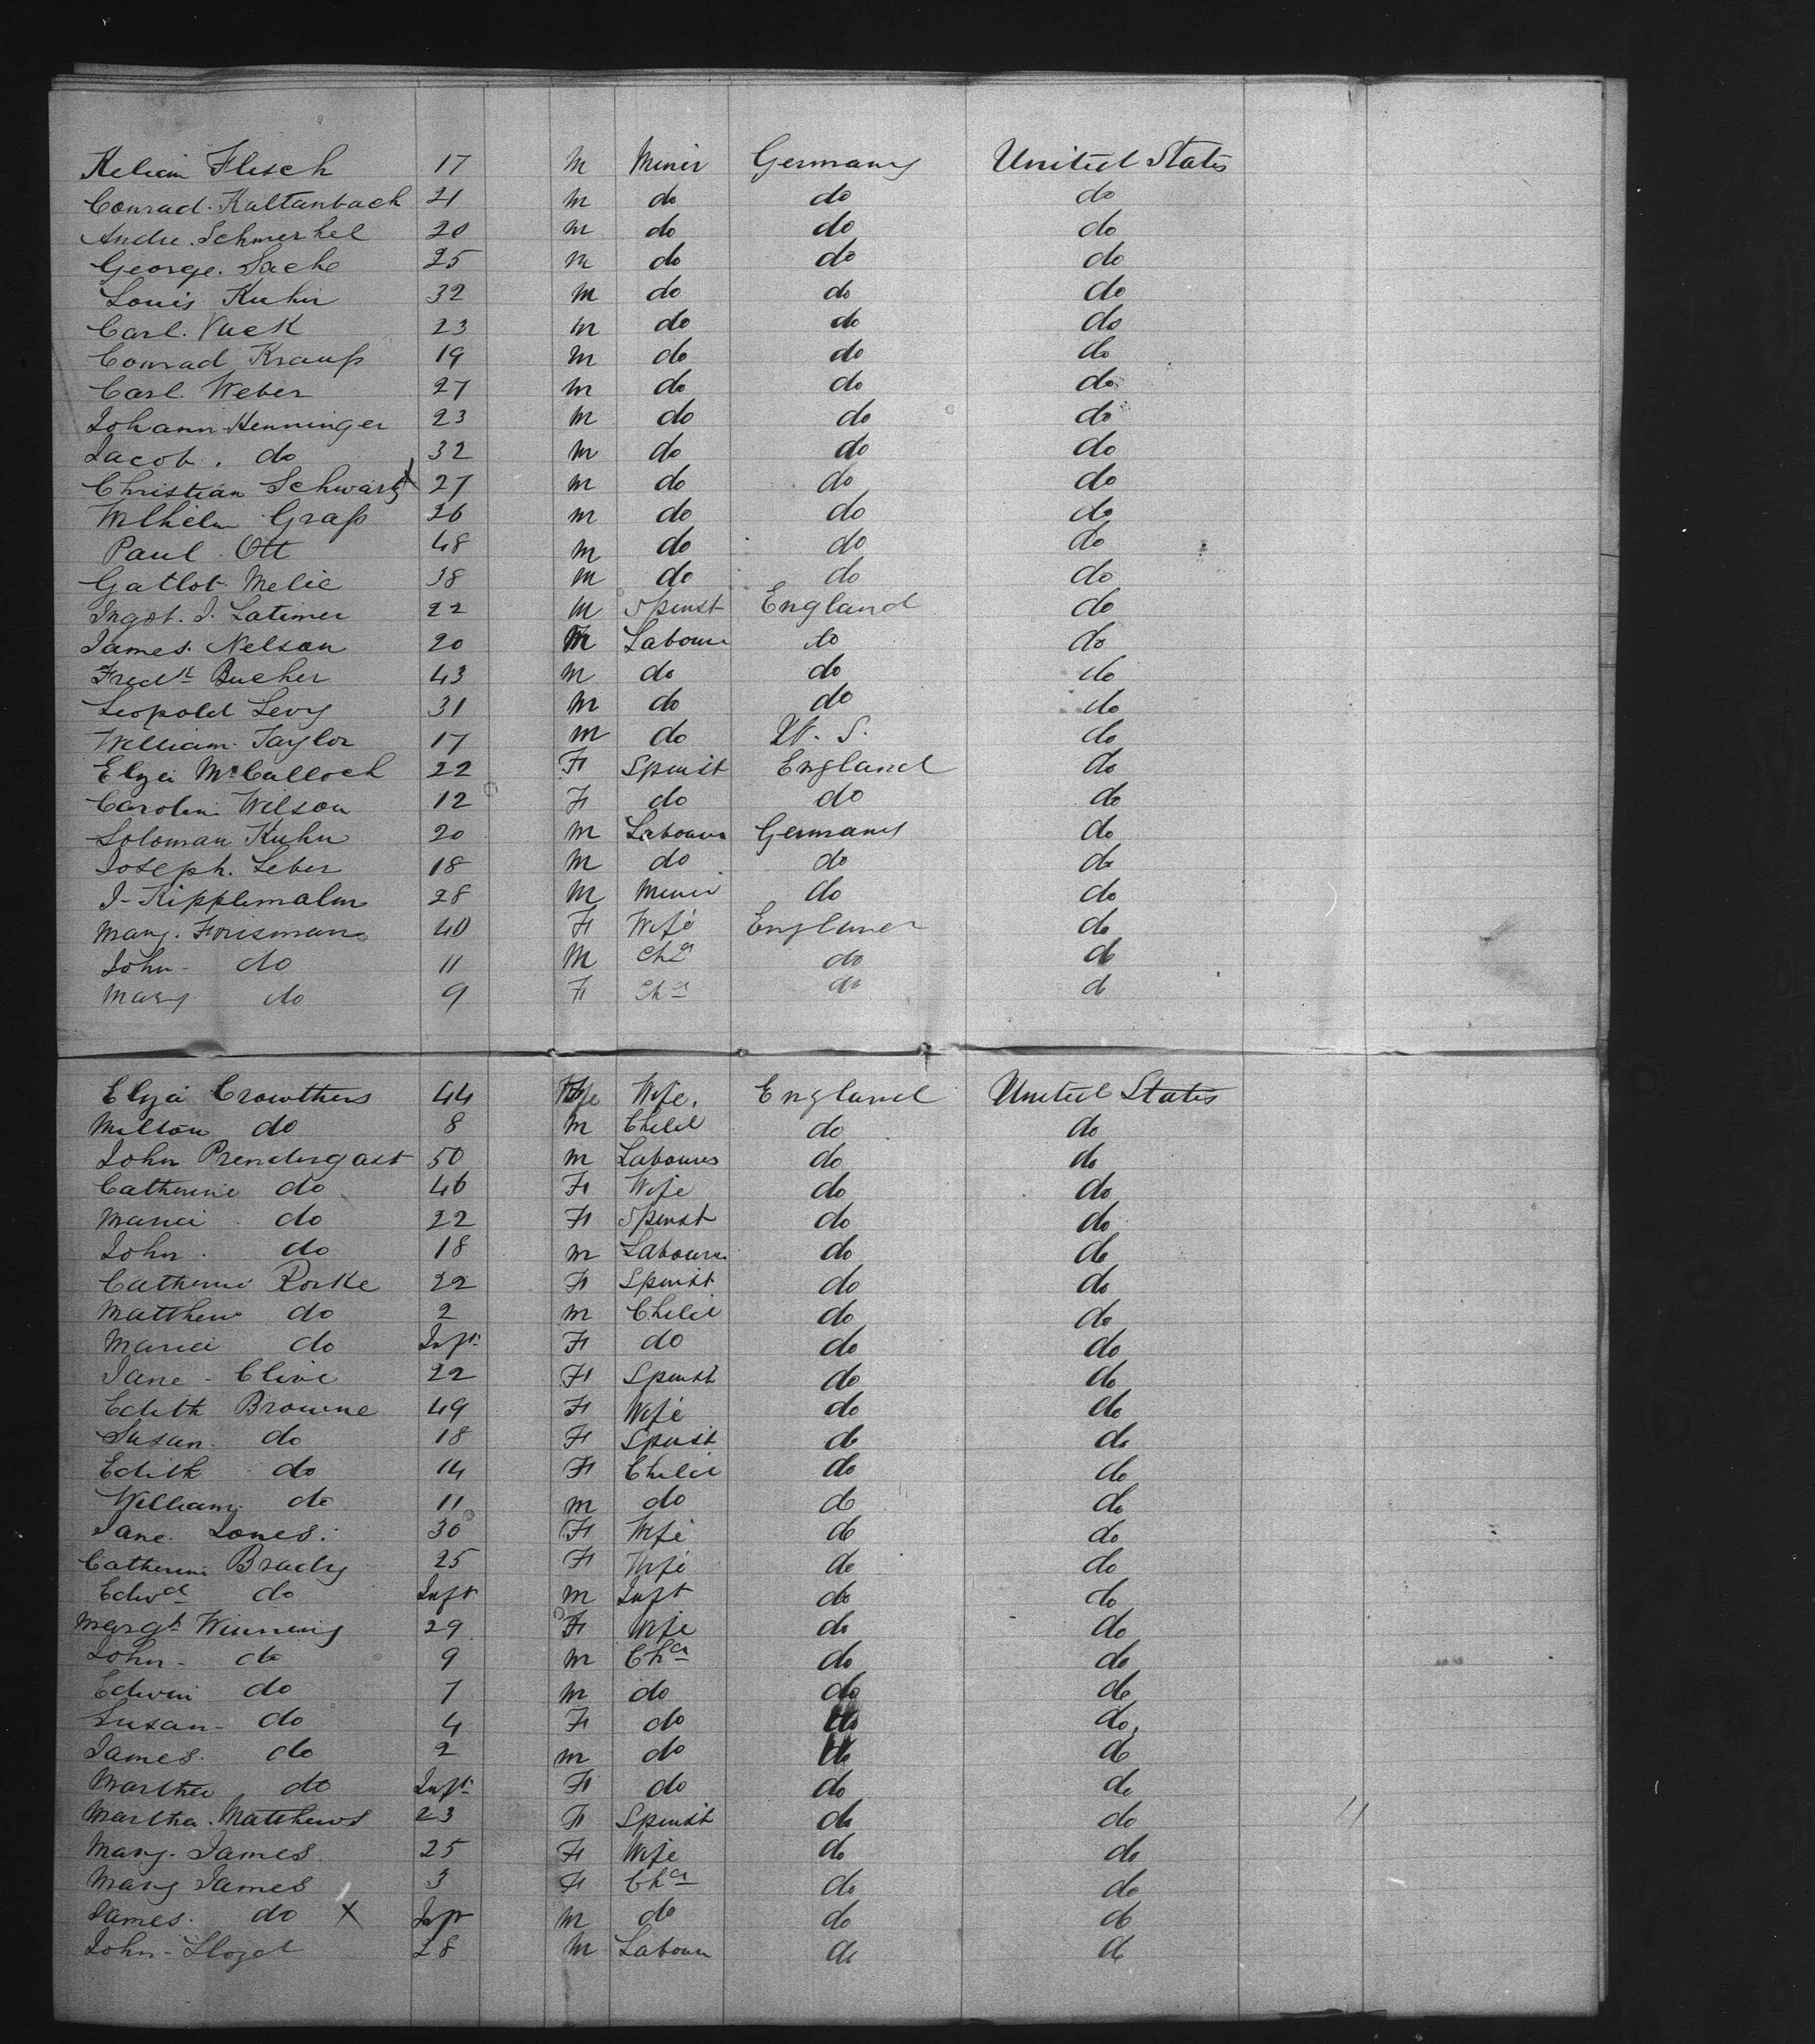 Kelian Flesch 17 M Miner Germany United States
Conrad Kaltanbach 21 M do do do
Andre Schmerkel 20 M do do do
George Sache 25 M do do do
Louis Kuhn 32 M do do do
Carl Vuck 23 M do do do
Conrad Krauß 19 M do do do
Carl Weber 27 M do do do
Johann Henninger 23 M do do do
Jacob do 32 M do do do
Christian Schwartz 27 M do do do
Wilhelm Graß 26 M do do do
Paul Ott 48 M do do do
Gatlob Melie 38 M do do do
J. Latimer 22 M Spinst England do
James Nelson 20 M Labourer do do
Fredk Bucher 43 M do do do
Leopold Levy 31 M do do do
William Taylor 17 M do U. S. do
Eliza McCalloch 22 F Spinst England do
Caroline Wilson 12 F do do do
Soloman Kuhn 20 M Labourer Germany do
Joseph Leber 18 M do do do
J- Kipplemalm 28 M Miner do do
Mary Forisman 40 F Wife England do
John do 11 M Chd do do
Mary do 9 F Chd do do
Eliza Crowthers 44 Wife England United States
Milton do 8 M Child do do
John Prendergast 50 M Labourer do do
Catherine do 46 F Wife do do
Maria do 22 F Spinst do do
John do 18 M Labourer do do
Catherine Rorke 22 F Spinst do do
Matthew do 2 M Child do do
Maria do Inft F do do do
Jane - Clive 22 F Spinst do do
Edith Browne 49 F Wife do do
Susan do 18 F Spinst do do
Edith do 14 F Child do do
William do 11 M do do do
Jane Jones 30 F Wife do do
Catherine Brady 25 F Wife do do
Edwd do Inft M Inft do do
Margt Winning 29 F Wife do do
John - do 9 M Chd do do
Edwin do 7 M do do do
Susan - do 4 F do do do
James do 2 M do do do
Martha do Inft F do do do
Martha Matthews 23 F Spinst do do
Mary James 25 F Wife do do
Mary James 3 F Chd do do
James do X Inft M do do do
John - Lloyd 28 M Labourer do do